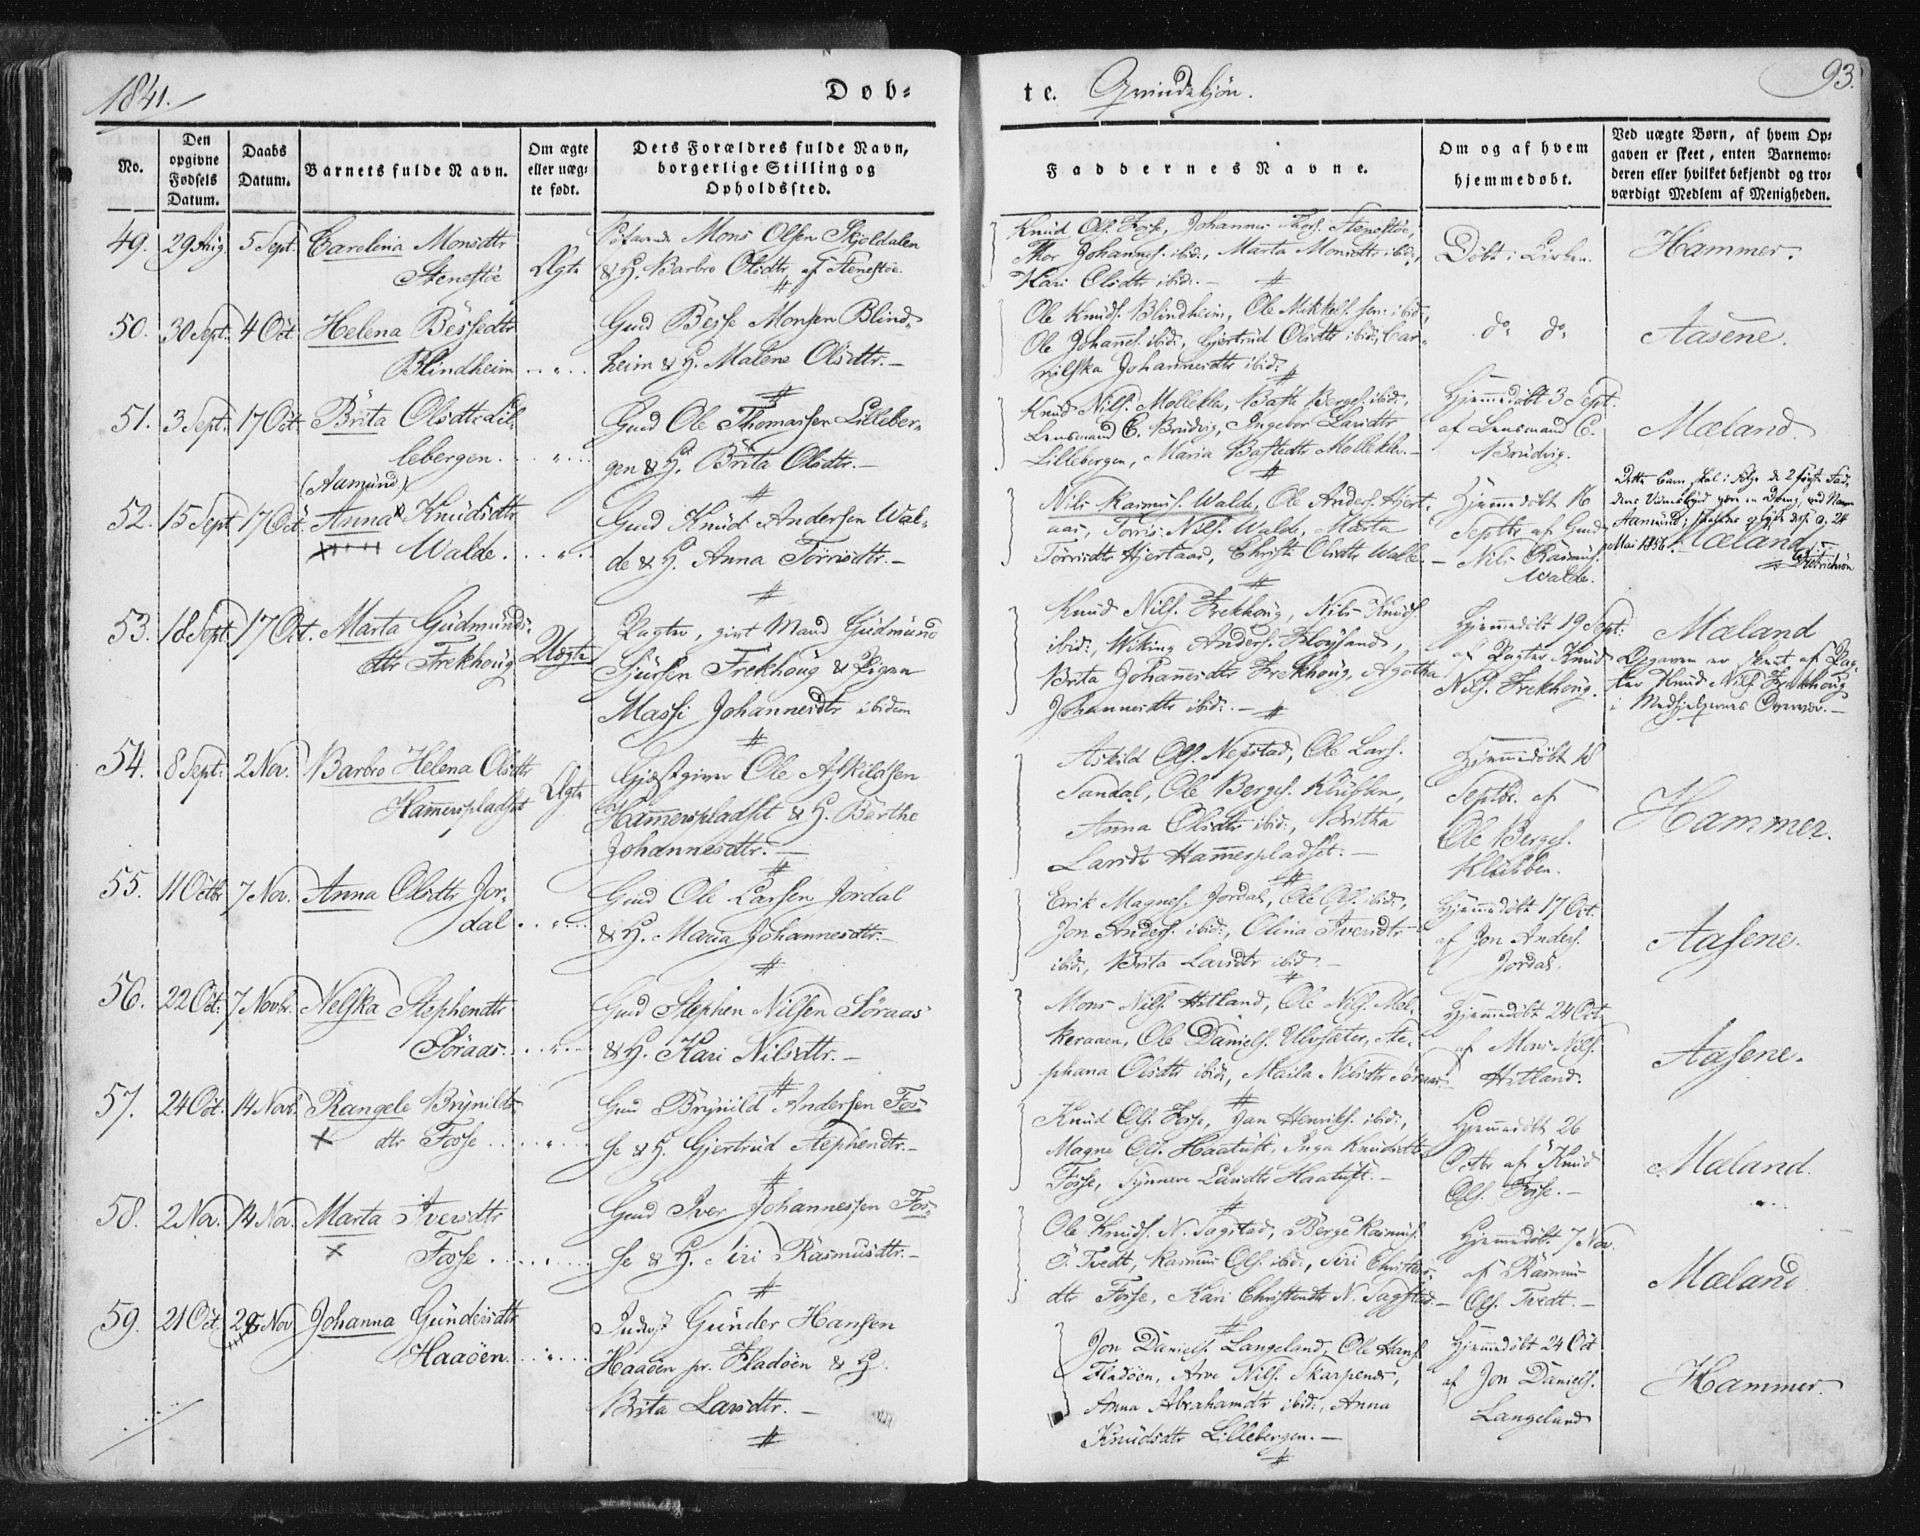 1841.
Døb-
te. Qvindekjön.
93.
No.
Den opgivne Fødsels Datum.
Daabs Datum.
Barnets fulde Navn.
Om ægte eller uæg-te født.
Dets Forældres fulde Navn, borgerlige Stilling og Opholdssted.
Faddernes Navne.
Om og af hvem hjemmedøbt.
Ved uægte Børn, af hvem Op-
gaven er skeet, enten Barnemo-
deren eller hvilket bekjendt og tro-
værdigt Medlem af Menigheden.
49. 29 Aug. 5 Sept. Carelina Monsdtr
Stenestöe Ægte
Mons Olsen Skjoldalen
& H. Barbro Olsdtr af Stenestöe.
Knud Ols. Fosse, Johannes Thors. Stenestöe,
Thor Johannes. ibid:, Marta Monsdtr ibid:,
Kari Olsdtr ibid: —
Döbt i Kirken.
Hammer.
50. 30 Sept. 4 Oct. Helena Bessedtr
Blindheim — " —
Gmd Besse Monsen Blind-
heim & H. Malene Olsdtr. —
Ole Knuds. Blindheim, Ole Mikkels. sen: ibid:,
Ole Johannes. ibid:, Gjertrud Olsdtr ibid:, Car-
nilska Johannesdtr ibid:
do do
Aasene.
51. 3 Sept. 17 Oct. Brita Olsdtr Lil-
lebergen. — " —
Gmd Ole Thomassen Lilleber-
gen & H. Brita Olsdtr. —
Knud Nils. Mölleklev, Berges. ibid:,
Lensmand C. Brudvig, Ingebor Larsdtr
Lillebergen, Maria Mölleklev. —
Hjemmedöbt 3 Sept.
af Lensmand C.
Brudvig.
Mæland.
(Aamund)
52. 15 Sept. 17 Oct. Anna Knudsdtr
Walde. — " —
Gmd Knud Andersen Wal-
de & H. Anna Torrisdtr. —
Nils Rasmus. Walde, Ole Anders. Hjert-
aas, Torris Nils. Walde, Marta
Torrisdtr Hjertaas, Olsdtr Walde. —
Hjemmedöbt 16
Septbr af Gmd
Nils Rasmus.
Walde.
Dette Barn skal i Følge de 2 første Fad-
deres Vidnesbyrd være en Dreng ved Navn
Aamund;
Mai 1856. Mæland
53. 18 Sept. 17 Oct. Marta Gudmunds-
dtr Frekhoug Uægte
Pagter, givt Mand Gudmund
Sjursen Frekhoug & Pigen
Massi Johannesdtr ibidem
Knud Nils. Frekhoug, Nils Knuds.
ibid:, Wiking Anders. Floysand,
Brita Johannesdtr Frekhoug, Agatha
Johannesdtr ibid: —
Hjemmedöbt 19 Sept:
af Pagter Knud
Nils. Frekhoug.
Mæland
Opgaven er skeet af Pag-
ter Knud Nils. Frekhoug
i Medhjelpernes Overvær. —
54. 8 Sept. 2 Nov. Barbro Helena Olsdtr
Hammerspladset Ægte
Gjæstgiver Ole Askildsen
Hammerspladset & H. Berthe
Johannesdtr. —
Askild Ols. Nepstad, Ole Lars.
Sandal, Ole Berges. Klubben,
Anna Olsdtr ibid:, Britha
Larsdtr Hammerspladset. —
Hjemmedöbt 18
Septbr. af
Ole Berges.
Klubben.
Hammer.
55. 11 Octbr 7 Nov. Anna Olsdtr Jor-
dal — " —
Gmd Ole Larsen Jordal
& H. Maria Johannesdtr. —
Erik Magnes. Jordal, Ole Ols. ibid:,
Jon Anders. ibid:, Olina Iversdtr
ibid:, Brita Larsdtr ibid: —
Hjemmedöbt 17 Oct.
af Jon Anders.
Jordal.
Aasene.
56. 22 Oct. 7 Novbr. Nelska Stephensdtr
Söraas — " —
Gmd Stephen Nilsen Söraas
& H. Kari Nilsdtr. —
Mons Nils. Hitland, Ole Nils. Mel-
keraaen, Ole Daniels. Ulvsæter, Ste-
phana Olsdtr ibid:, Maila Nilsdtr Söraas
Hjemmedöbt 24 Oct.
af Mons Nils.
Hitland.
Aasene.
57. 24 Oct. 14 Novb. Rangele Brynilds-
dtr Fosse — " —
Gmd Brynild Andersen Fos-
se & H. Gjertrud Stephensdtr. —
Knud Ols. Fosse, Jan Henriks. ibid:,
Magne Ols. Haatuft, Inga Knudsdtr
Fosse, Synneve Larsdtr Haatuft. —
Hjemmedöbt 26
Octbr af Knud
Ols. Fosse. —
Mæland.
58. 2 Nov. 14 Nov. Marta Iversdtr
Fosse — " —
Gmd Iver Johannessen Fos-
se & H. Siri Rasmusdtr. —
Ole Knuds. N. Sagstad, Berge Rasmus.
Ö. Tvedt, Rasmus Ols. ibid:, Siri Christens-
dtr Fosse, Kari Christensdtr N. Sagstad. —
Hjemmedöbt 7 Nov.
af Rasmus
Ols. Tvedt. —
Mæland
59. 21 Oct. 28 Nov Johanna Gundersdtr
Haaöen. — " —
Inderst Gunder Hansen
Haaöen pr. Fladöen & H.
Brita Larsdtr. —
Jon Daniels. Langeland, Ole Hans.
Fladöen, Arve Nils. Skarpenes,
Anna Abrahamsdtr ibid:, Anna
Knudsdtr Lillebergen. —
Hjemmedöbt 24 Oct
af Jon Daniels.
Langeland
Hammer.